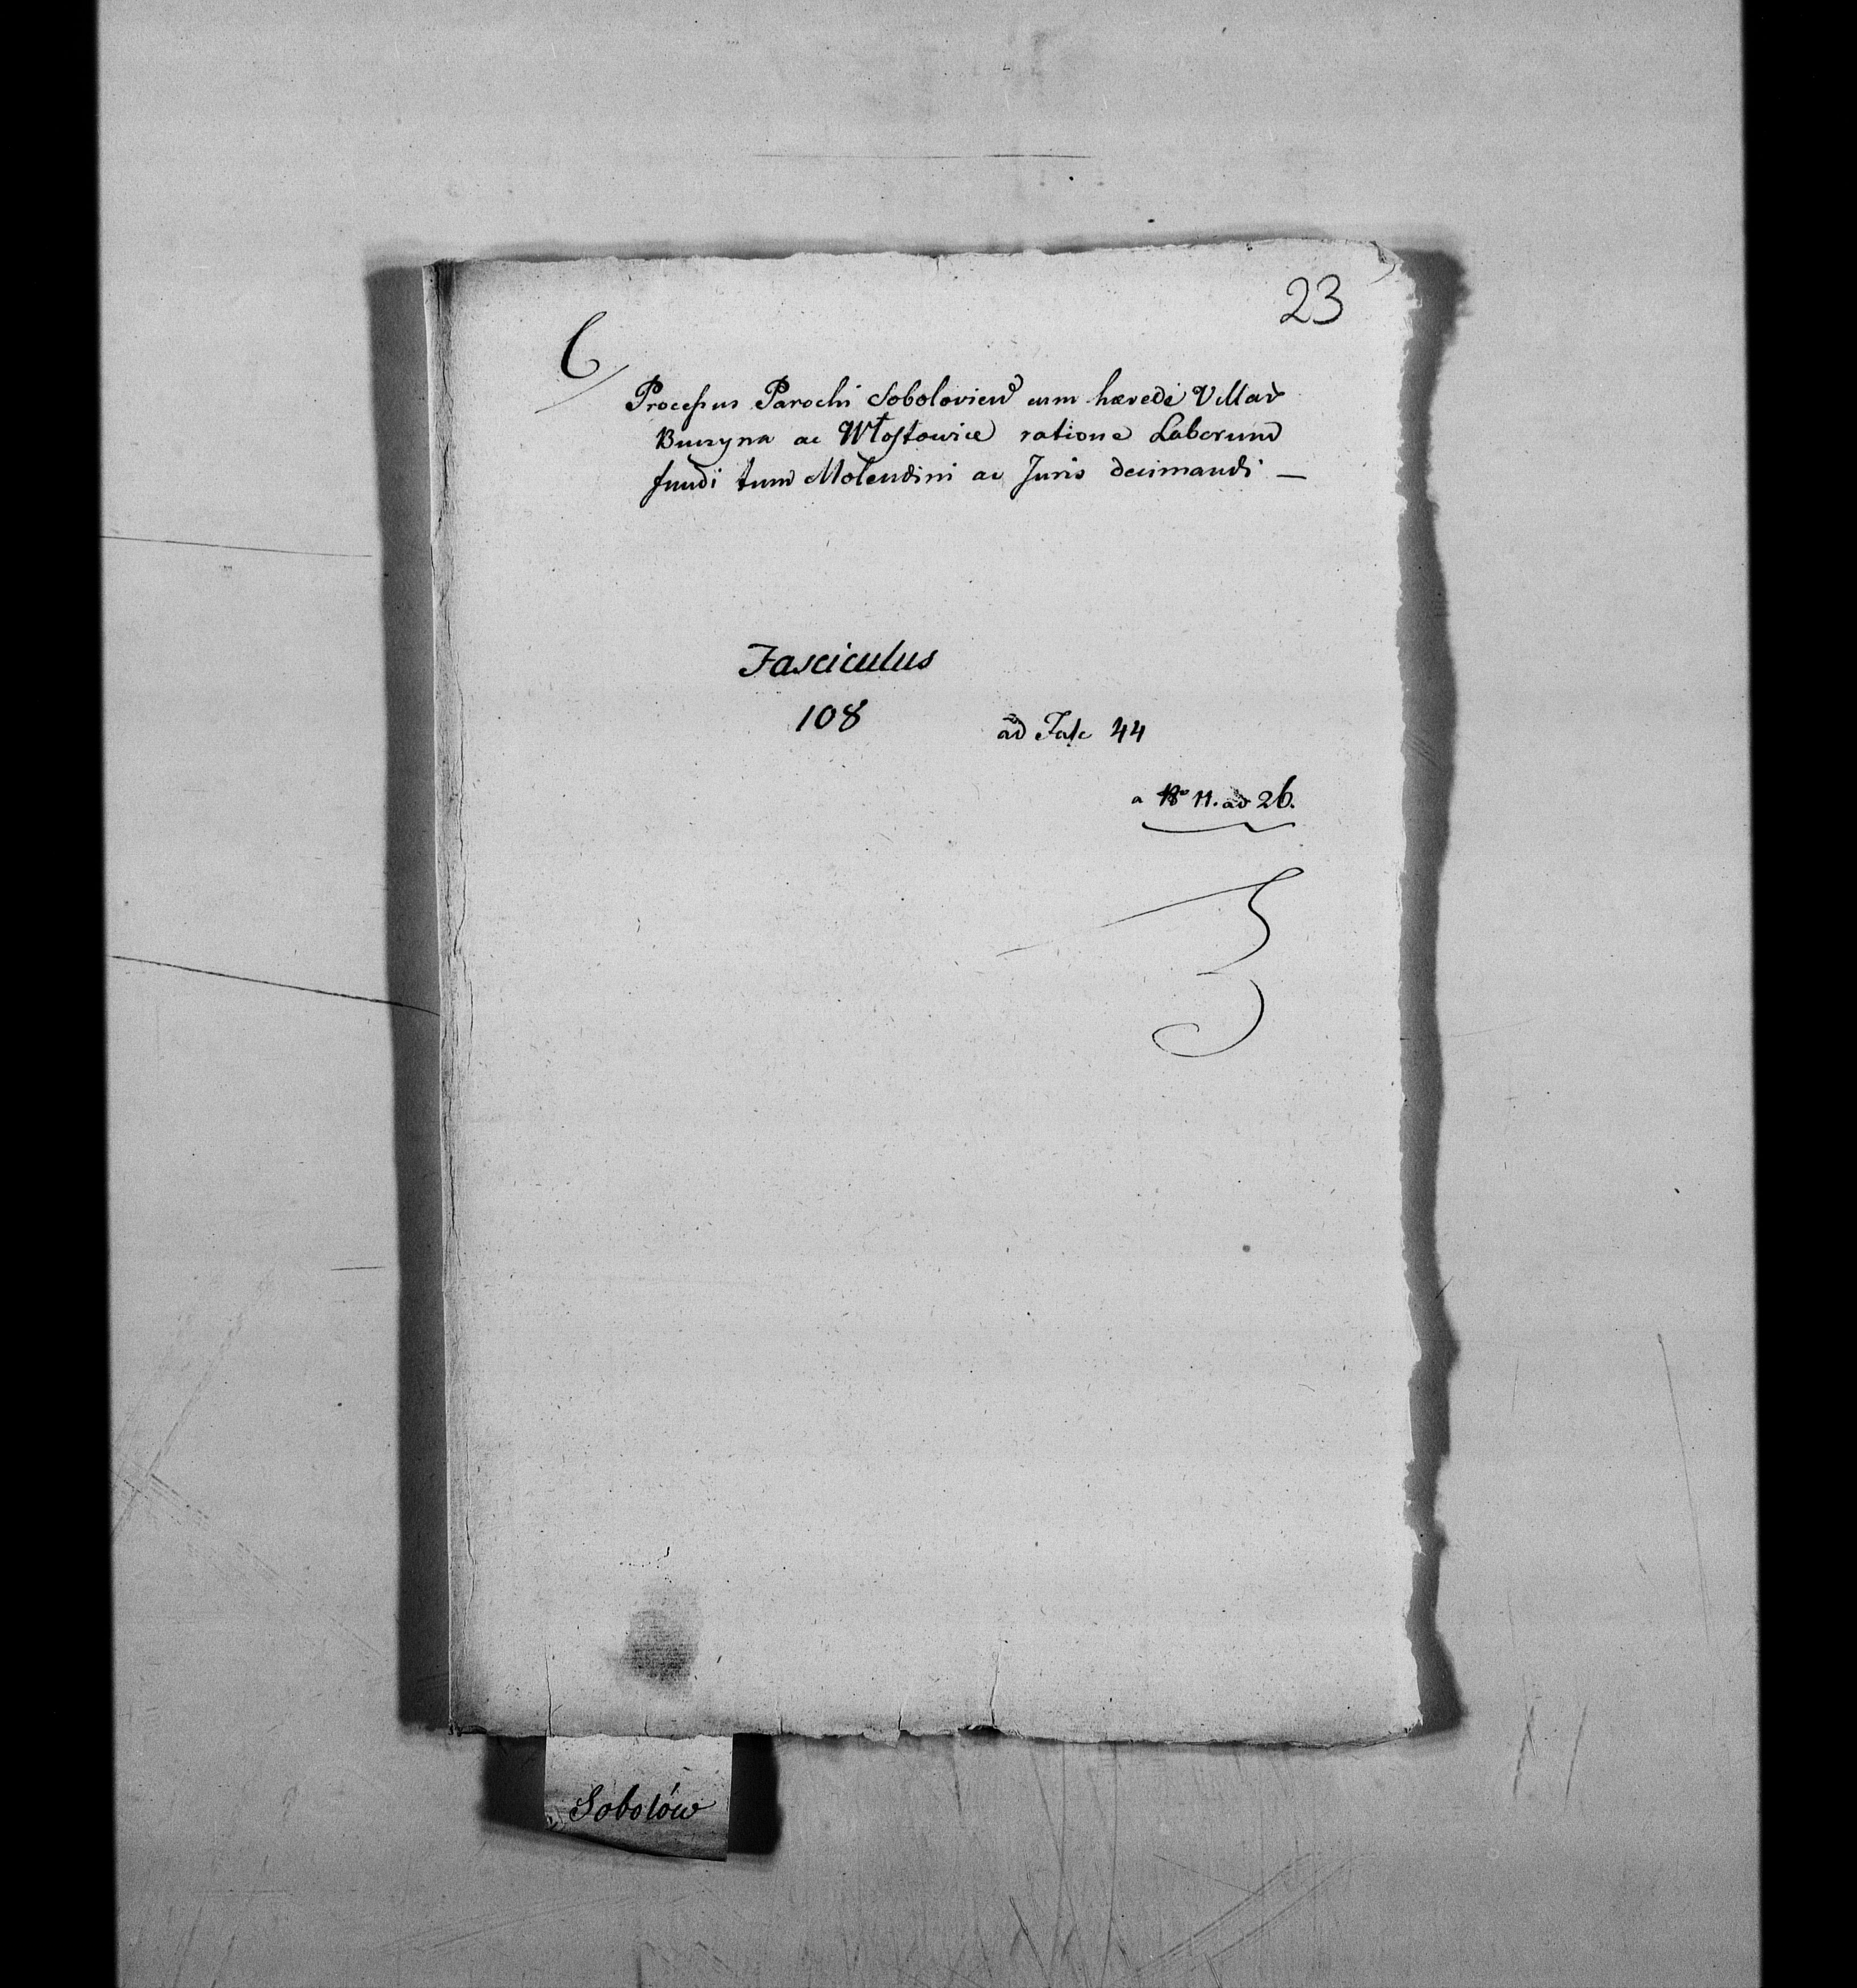 23
6
Processus Parochi Soboloviens cum hærede Villar
Buczyna ac Włostowice ratione Laborum
fundi tum Molendini ac Juris decimandi —
Fasciculus
108
ad Fasc 44
a No 11. ad 26.
Sobolów